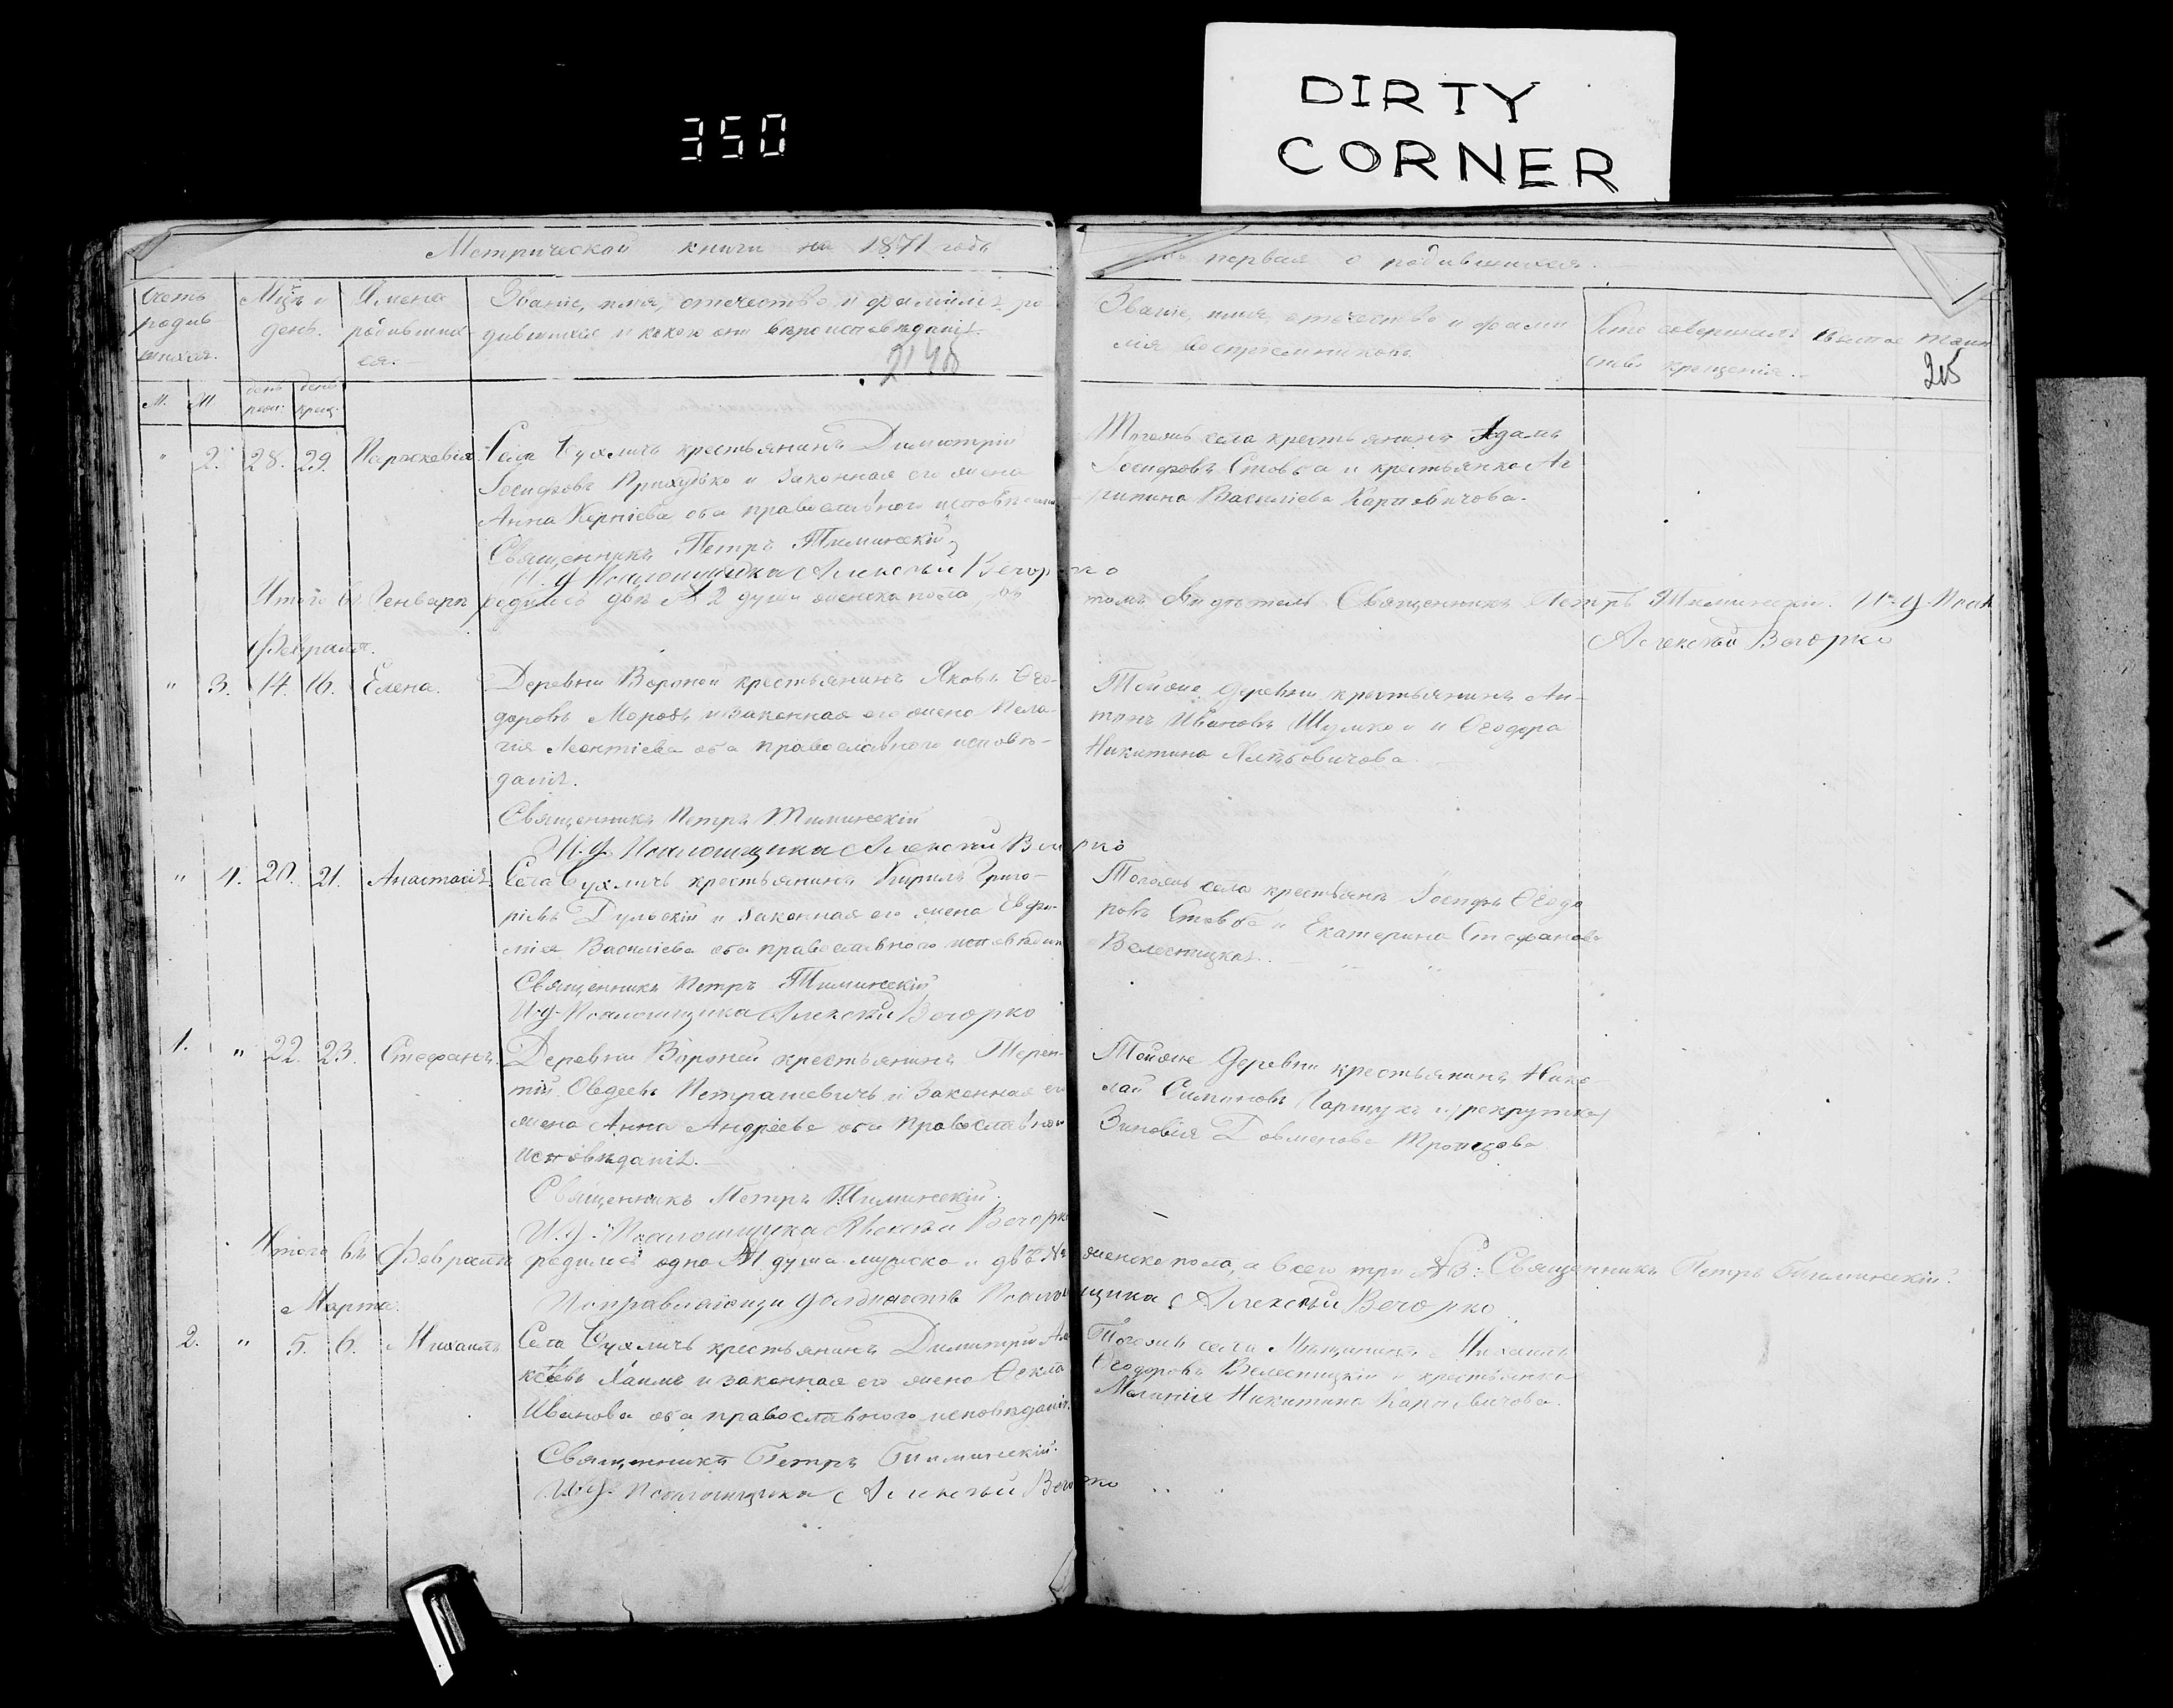 DIRTY
CORNER
350
Метрической книги на 1871 годъ
первая о родившихся.
Счетъ родив шихся.
Мцъ и день.
Имена родивших ся.
Званіе, имя, отечество и фамилія ро
дившихся и какого они вѣроисповѣданія.
2148
Званіе, имя, отечество и фами
лія воспріемниковъ
Кто совершалъ таин
ство крещенія.
215
М. день рожд. день крещ.
" 2. 28. 29. Параскевія.
Села Сухличъ крестьянинъ Димитрій
Іосифовъ Приходько и законная его жена
Анна оба православного исповѣдан
Священникъ Петръ Тиминскій
И. д. Псаломщика Алексѣй Вечорко
Тогожъ села крестьянинъ Адамъ
Іосифовъ Стовба и крестьянка Аг
рипина Василіева Карповичова.
Итого въ Генварѣ родились двѣ 2 души женска пола, въ
томъ Священникъ Петръ Тиминскій. И. д. Псал
Алексѣй Вечорко
Февраля.
" 3. 14. 16. Елена.
Деревни Вороной крестьянинъ Яковъ Ѳео-
доровъ Морозъ и законная его жена Пела-
гія Леонтіева оба православного исповѣ-
данія.
Священникъ Петръ Тиминскій
И. д. Псаломщика Алексѣй Вечорко
Тойже деревни крестьянинъ Ан-
тонъ Ивановъ и Ѳеодора
Никитина
" 4. 20. 21. Анастасія.
Села Сухличъ крестьянинъ Кирилъ Григо-
рьевъ Дульскій и законная его жена Евфи-
мія Василіева оба православного исповѣдан
Священникъ Петръ Тиминскій
И. д. Псаломщика Алексѣй Вечорко
Тогожъ села крестьянъ Іосифъ Ѳеодо
ровъ Стовба и Екатерина Стефанова
Велестицкая.
1. " 22. 23. Стефанъ.
Деревни Вороней крестьянинъ Терен-
тій Овдеевъ Петрашевичъ и законная его
жена Анна Андреева оба православного
исповѣданія.
Священникъ Петръ Тиминскій.
И. д. Псаломщика Алексѣй Вечорко
Тойже деревни крестьянинъ Нико
лай Симоновъ и рекрутка
Зиновія
Итого въ Февралѣ родилась одна душа мужска и двѣ женска пола, а всего три Священникъ Петръ Тиминскій.
Исправляющи должность Псаломщика Алексѣй Вечорко
Марта.
2. " 5. 6. Михаилъ
Села Сухличъ крестьянинъ Димитрій Але
ксѣевъ и законная его жена Ѳекла
Иванова оба православного исповѣданія.
Священникъ Петръ Тиминскій.
И. д. Псаломщика Алексѣй Вечорко
Тогожъ села Мѣщанинъ Михаилъ
Ѳеодоровъ Велестицкій и крестьянка
Меланія Никитина Карповичова.